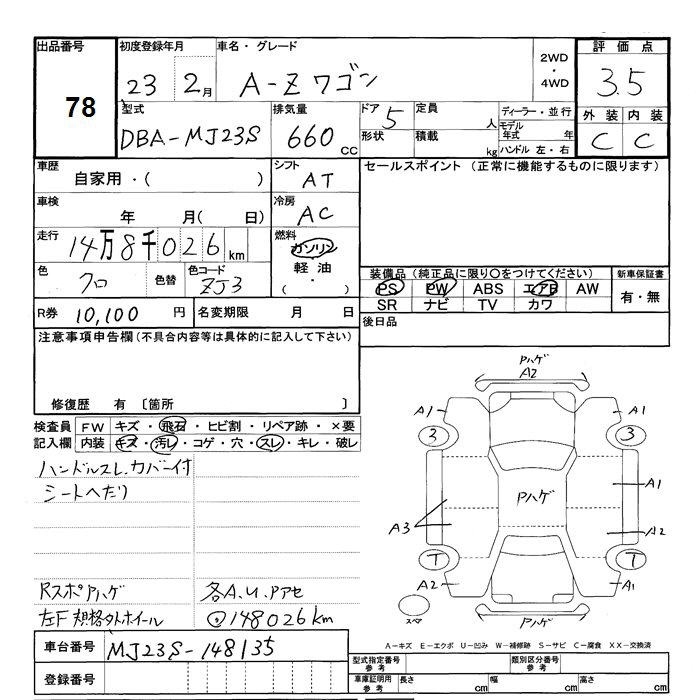 出品番号 78
初度登録年月 23 2月
車名・グレード A-Zワゴン
2WD・4WD
評価点 3.5
型式 DBA-MJ23S
排気量 660 CC
ドア 5 形状
定員 人
積載 kg
ディーラー・並行
モデル年式 年
ハンドル 左・右
外装 C 内装 C
車歴 自家用・( )
シフト AT
セールスポイント (正常に機能するものに限ります)
車検 年 月( 日)
冷房 AC
走行 14万8千026km
燃料 ガソリン 軽油 ( ・ )
色 クロ 色替 色コード ZJ3
装備品 (純正品に限り〇をつけてください) 新車保証書
PS PW ABS エアB AW 有・無
SR ナビ TV カワ
R券 10,100 円 名変期限 月 日
後日品
注意事項申告欄 (不具合内容等は具体的に記入して下さい)
修復歴 有 〔箇所 〕
検査員 FW キズ・飛石・ヒビ割・リペア跡・×要
記入欄 内装 キズ・汚レ・コゲ・穴・スレ・キレ・破レ
ハンドルスレ.カバー付
シートへたり
Rスポ Pハゲ 各A.U.Pアセ
左F 規格外ホイール 148026km
車台番号 MJ23S-148135
登録番号
Pハゲ
A2
A1 A1
3 3
Pハゲ
A1
A3 A2
T T
A2 A1
スペア Pハゲ
A-キズ E-エクボ U-凹み W-補修跡 S-サビ C-腐食 XX-交換済
型式指定番号 参考 類別区分番号 参考
車庫証明用 参考 長さ cm 幅 cm 高さ cm